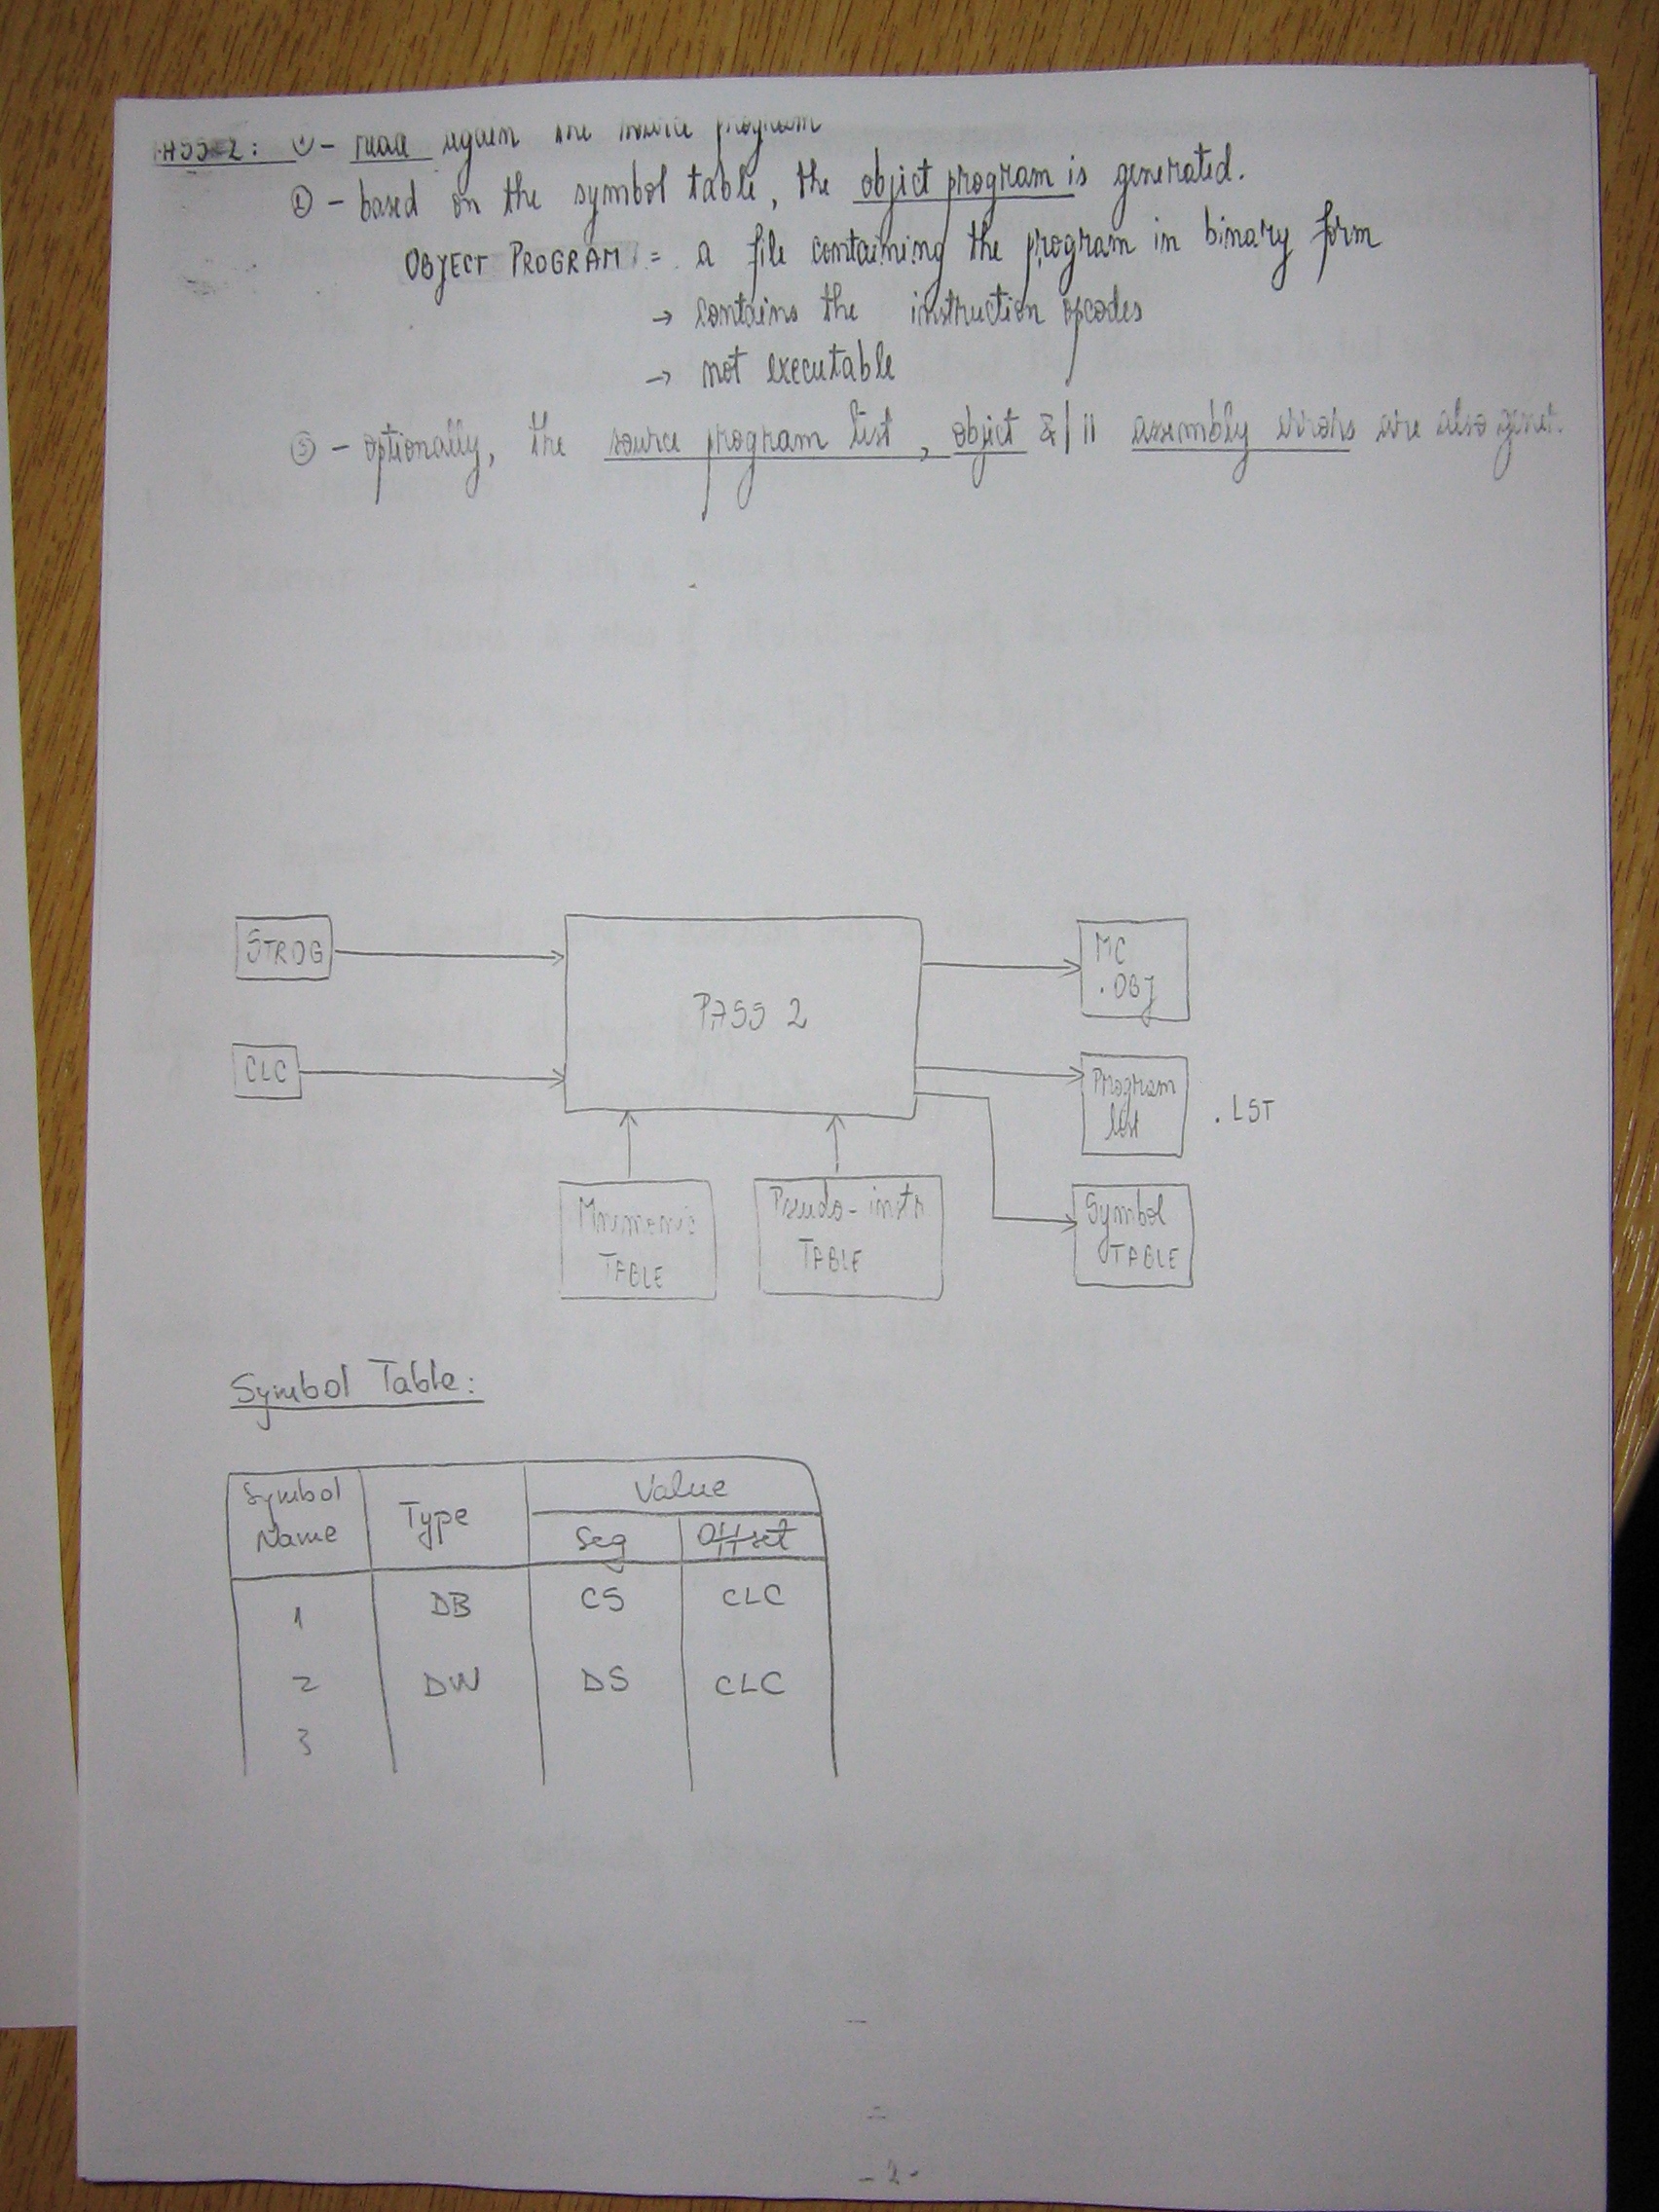 PASS 2: ① - read again the source program
② - based on the symbol table, the object program is generated.
OBJECT PROGRAM = a file containing the program in binary form
→ contains the instruction opcodes
→ not executable
③ - optionally, the source program list, object &|| assembly errors are also gener.
MC
.OBJ
PASS 2
CLC
Program
list
.LST
Mnemonic
TABLE
Pseudo-instr
TABLE
Symbol
TABLE
Symbol Table:
Symbol Name Type Value
Seg Offset
1 DB CS CLC
2 DW DS CLC
3
- 2 -